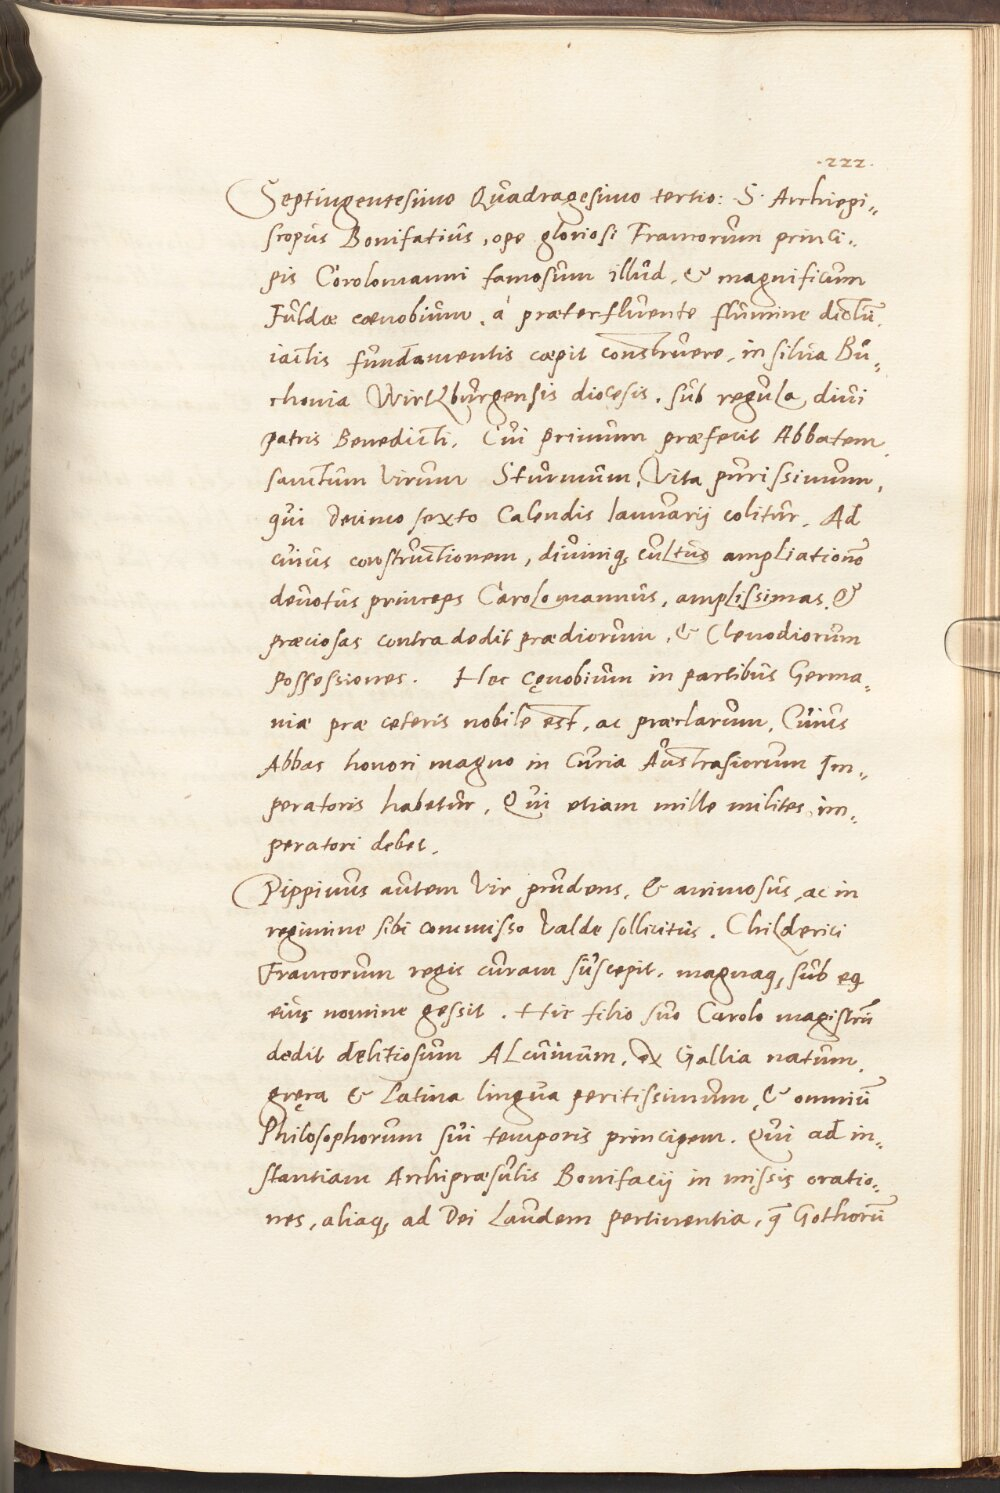 ·222·
Septingentesimo Quadragesimo tertio: S. Archiepi„
scopus Bonifatius, ope gloriosi Francorum princi„
pis Corolomanni famosum illud, & magnificum
Fuldæ cœnobium, á præterfluente flumine dictũ,
iactis fundamentis cœpit construere, in silua Bu„
chonia Wirtzburgensis diocesis, sub regula diui
patris Benedicti. Cui primum præfecit Abbatem
sanctum virum Sturmum, Vita purissimum,
qui decimo sexto Calendis Ianuarij colitur. Ad
cuius constructionem, diuiniq, cultus ampliationẽ
deuotus princeps Carolomannus, amplissimas, &
præciosas contradedit prædiorum, & Clenodiorum
possessiones. Hoc cęnobium in partibus Germa„
niæ præ ceteris nobile est, ac præclarum, Cuius
Abbas honori magno in Curia Austrasiorum Im„
peratoris habetur, Qui etiam mille milites im„
peratori debet.
Pippinus autem Vir prudens, & animosus, ac in
regimine sibi commisso Valde sollicitus, Childerici
Francorum regis curam suscepit, magnaq, sub eo
eius nomine gessit. Hic filio suo Carolo magistrũ
dedit delitiosum Alcuinum, ex Gallia natum,
gręca & Latina lingua peritissimum, & omniũ
Philosophorum sui temporis principem. Qui ad in„
stantiam Archipræsulis Bonifacij in missis oratio„
nes, aliaq, ad Dei Laudem pertinentia, q̃ Gothorũ